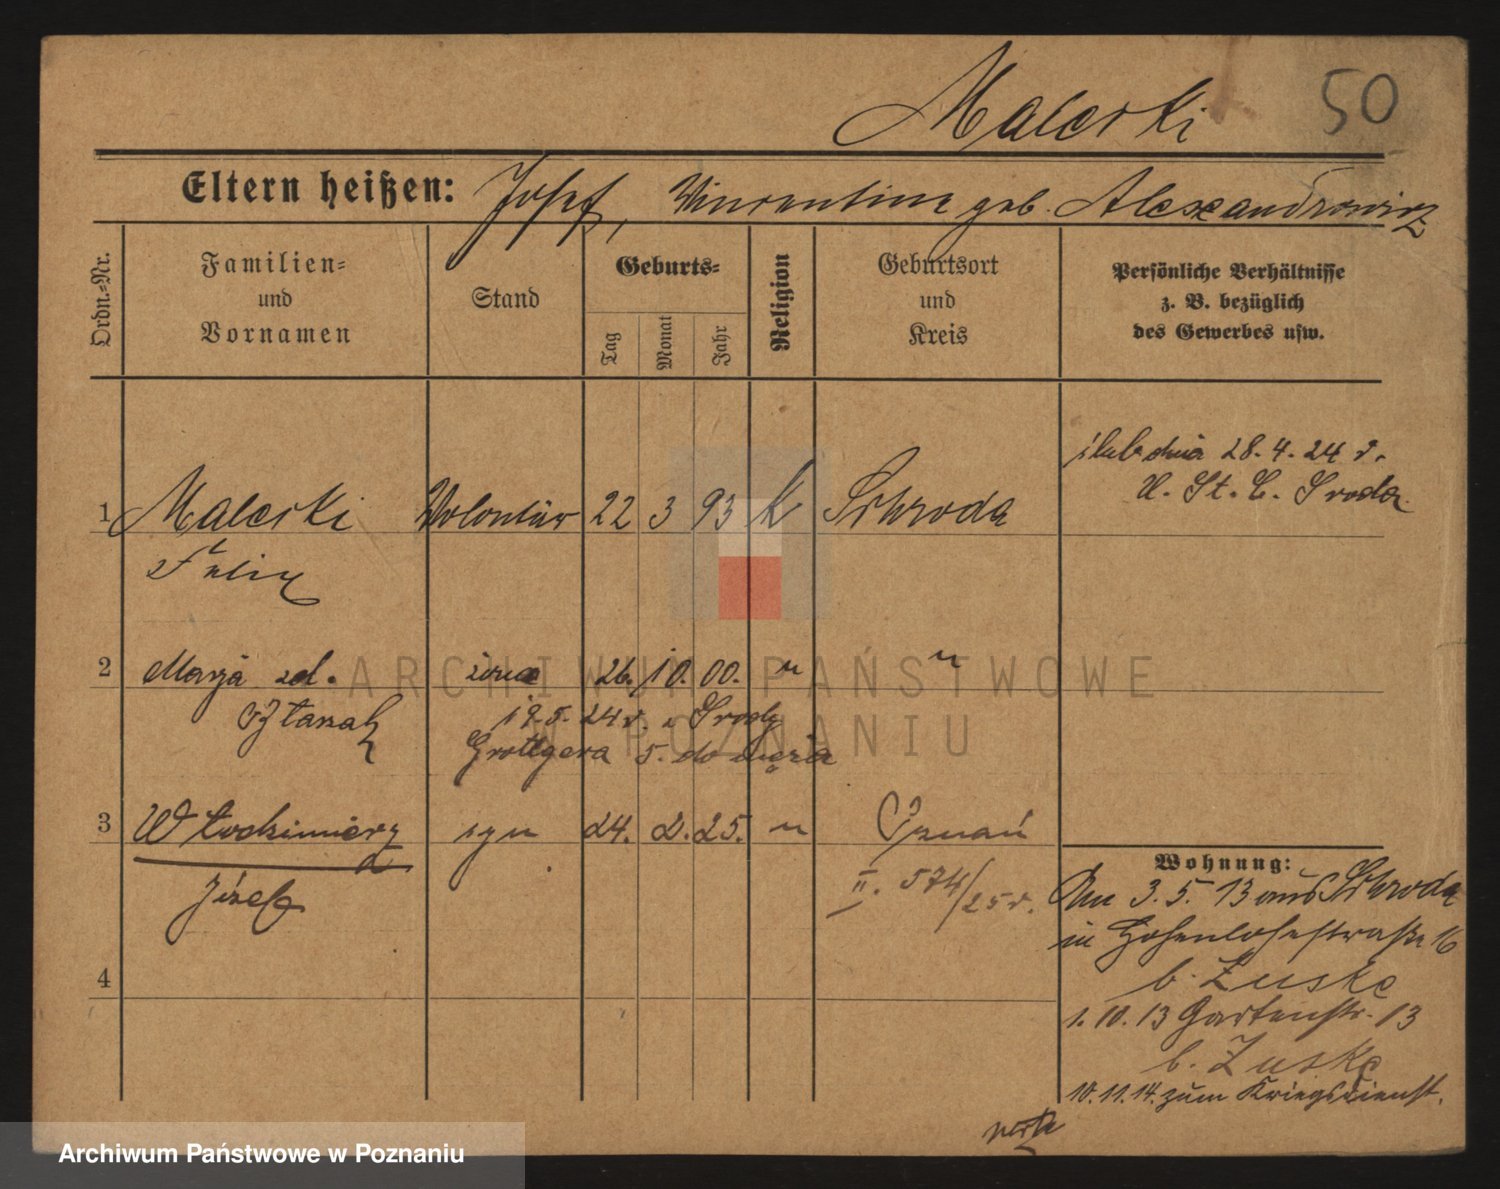 Malerski
50
Eltern heißen: Josef, Vincentine geb. Alexandrowicz
Ordn.-Nr.
Familien-
und
Vornamen
Stand
Geburts-
Tag
Monat
Jahr
Religion
Geburtsort
und
Kreis
Persönliche Verhältnisse
z. B. bezüglich
des Gewerbes usw.
ślub dnia 28.4.24 r.
U. St. C. Środa
1 Malerski Volontär 22 3 93 K Schroda
Felix
2 Marja zd. żona 26. 10. 00. " "
19.5.24 r. z Środy
Grottgera 5. do męża
3 Włodzimierz syn 24. 2. 25. " Poznań
Józef
II. 574/25 r.
4
Wohnung:
Am 3.5.13 aus Schroda
in Hohenlohestraße 16
b. Zuske
1.10.13 Gartenstr. 13
b. Zuske
10.11.14. zum Kriegsdienst.
verte
ARCHIWUM PAŃSTWOWE
W POZNANIU
Archiwum Państwowe w Poznaniu